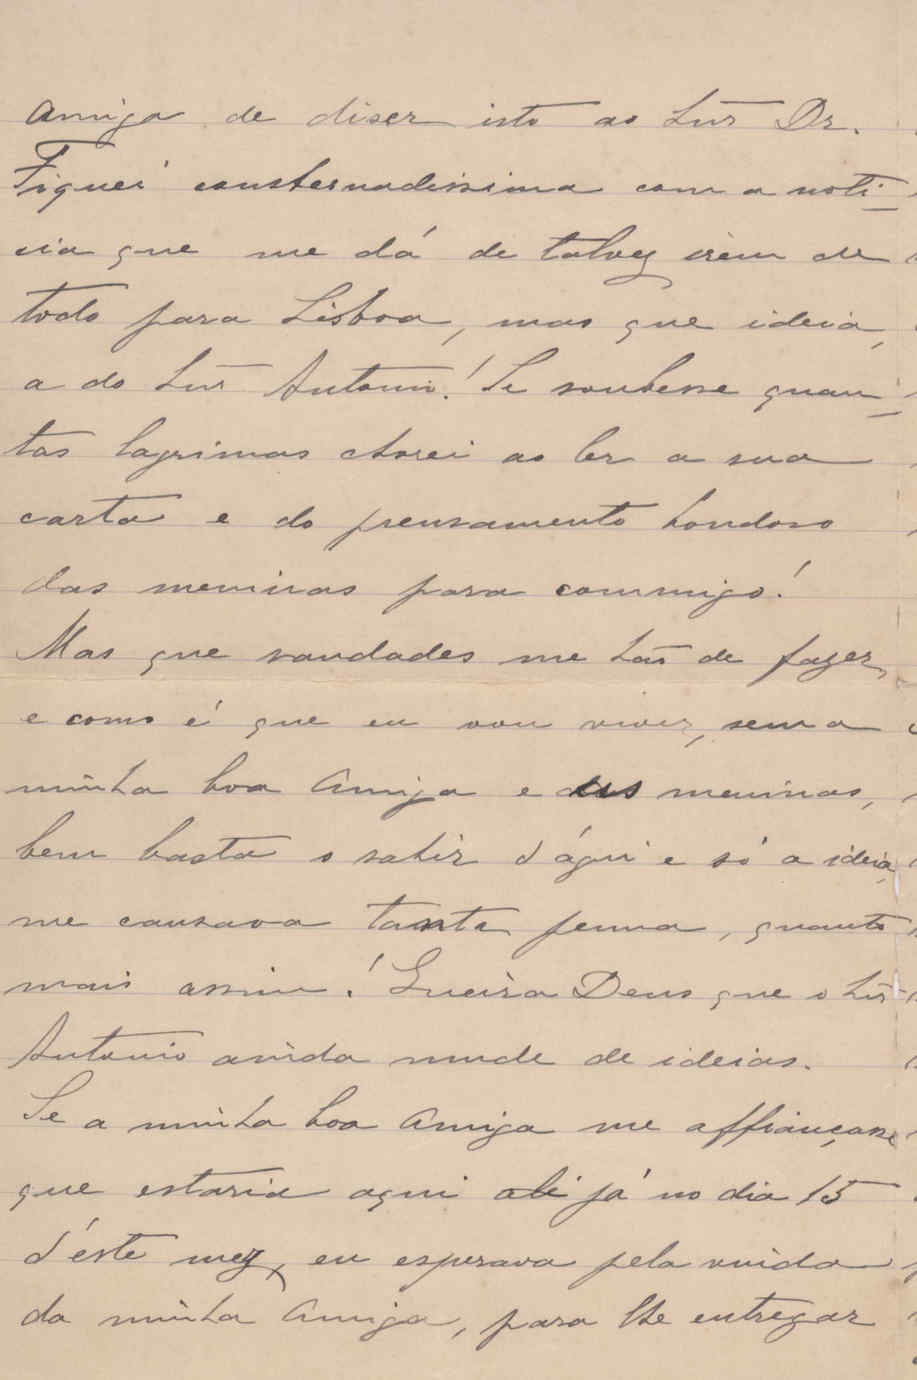 amiga de diser isto ao Snr Dr.
Fiquei consternadissima com a noti-
cia que me dá de talvez irem de
todo para Lisboa, mas que ideia,
a do Snr Antonio! Se soubesse quan-
tas lagrimas chorei ao ler a sua
carta e do pensamento bondoso
das meninas para commigo!
Mas que saudades me hão de fazer,
e como é que eu vou viver, sem a
minha boa Amiga e das meninas,
bem basta o sahir d'áqui e só a ideia
me causava tanta penna, quanto
mais assim! Queira Deus que o Snr
Antonio ainda mude de ideias.
Se a minha boa Amiga me affiançasse
que estaria aqui até já no dia 15
d'éste mez, eu esperava pela vinda
da minha Amiga, para lhe entregar